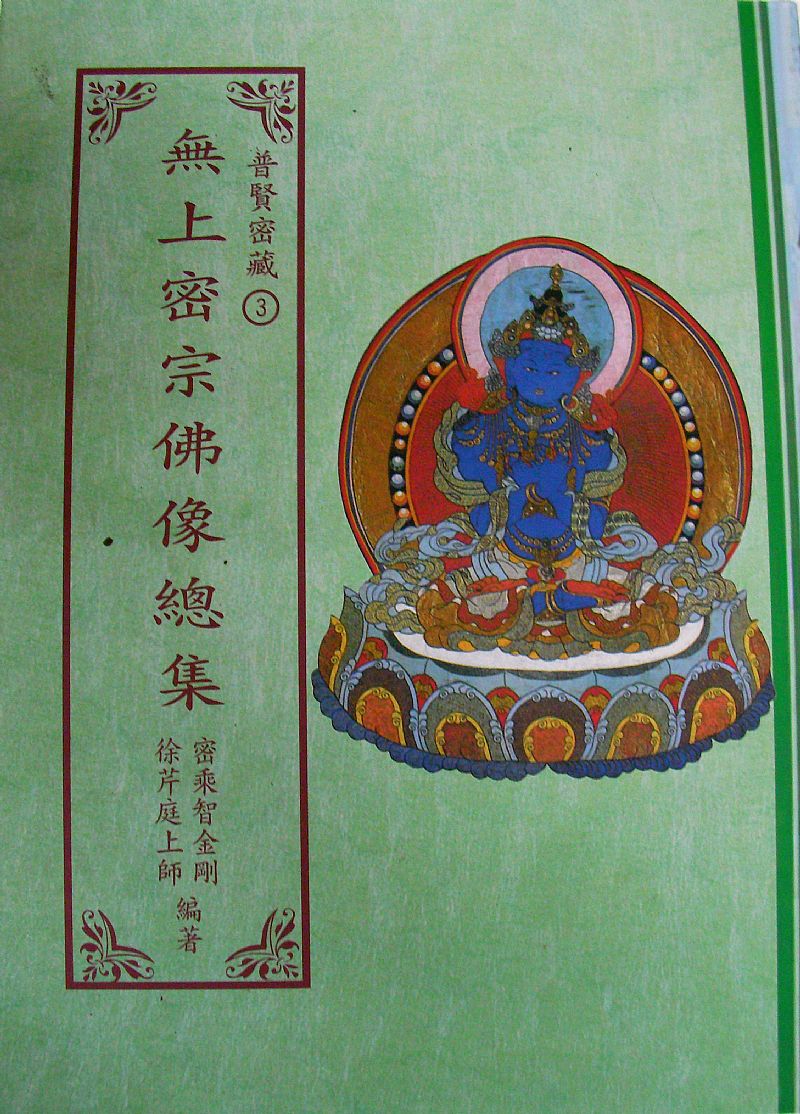 普賢密藏③
無上密宗佛像總集
密乘智金剛
徐芹庭上師
編著